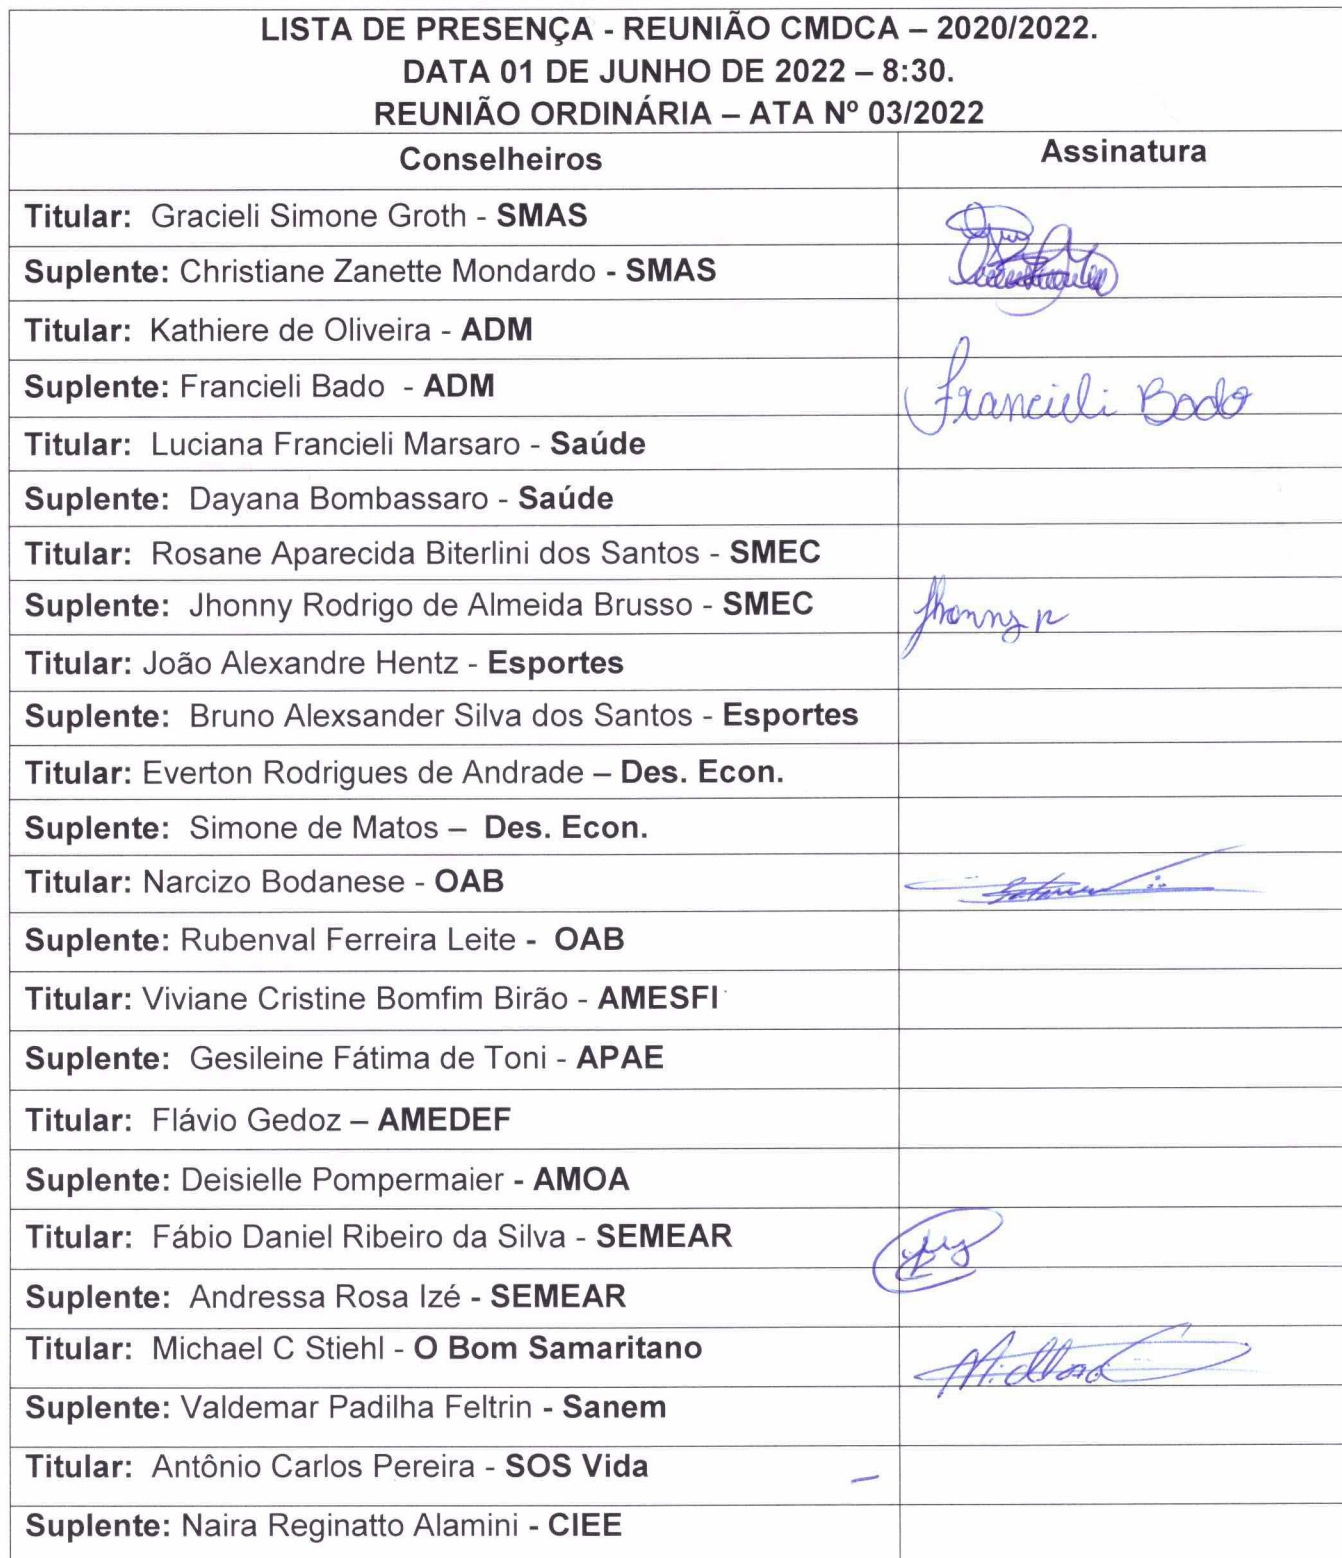 LISTA DE PRESENÇA - REUNIÃO CMDCA – 2020/2022.
DATA 01 DE JUNHO DE 2022 – 8:30.
REUNIÃO ORDINÁRIA – ATA Nº 03/2022
Conselheiros Assinatura
Titular: Gracieli Simone Groth - SMAS
Suplente: Christiane Zanette Mondardo - SMAS
Titular: Kathiere de Oliveira - ADM
Suplente: Francieli Bado - ADM Francieli Bado
Titular: Luciana Francieli Marsaro - Saúde
Suplente: Dayana Bombassaro - Saúde
Titular: Rosane Aparecida Biterlini dos Santos - SMEC
Suplente: Jhonny Rodrigo de Almeida Brusso - SMEC Jhonny R
Titular: João Alexandre Hentz - Esportes
Suplente: Bruno Alexsander Silva dos Santos - Esportes
Titular: Everton Rodrigues de Andrade – Des. Econ.
Suplente: Simone de Matos – Des. Econ.
Titular: Narcizo Bodanese - OAB
Suplente: Rubenval Ferreira Leite - OAB
Titular: Viviane Cristine Bomfim Birão - AMESFI
Suplente: Gesileine Fátima de Toni - APAE
Titular: Flávio Gedoz – AMEDEF
Suplente: Deisielle Pompermaier - AMOA
Titular: Fábio Daniel Ribeiro da Silva - SEMEAR
Suplente: Andressa Rosa Izé - SEMEAR
Titular: Michael C Stiehl - O Bom Samaritano
Suplente: Valdemar Padilha Feltrin - Sanem
Titular: Antônio Carlos Pereira - SOS Vida
Suplente: Naira Reginatto Alamini - CIEE